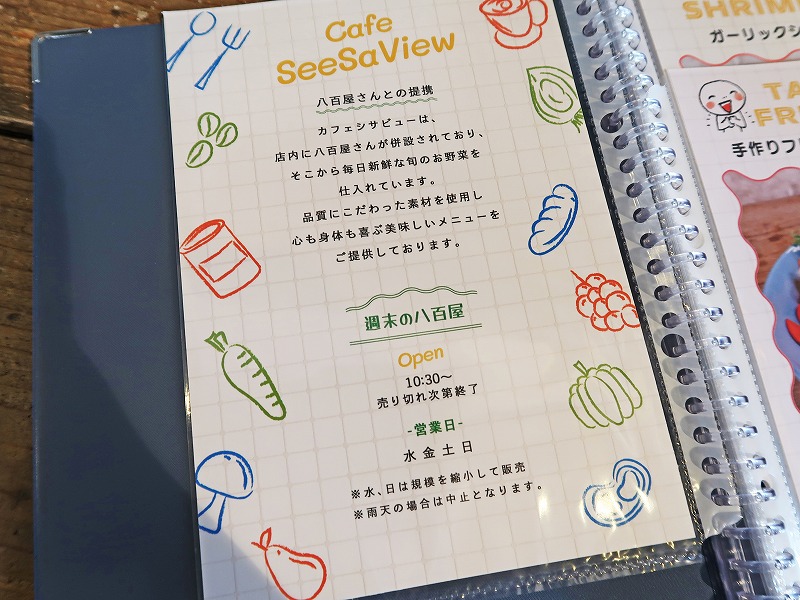 Cafe
SeeSaView
八百屋さんとの提携
カフェシサビューは、
店内に八百屋さんが併設されており、
そこから毎日新鮮な旬のお野菜を
仕入れています。
品質にこだわった素材を使用し
心も身体も喜ぶ美味しいメニューを
ご提供しております。
週末の八百屋
Open
10:30〜
売り切れ次第終了
-営業日-
水 金 土 日
※水、日は規模を縮小して販売
※雨天の場合は中止となります。
SHRIM
ガーリックシ
TA
FR
手作りフ